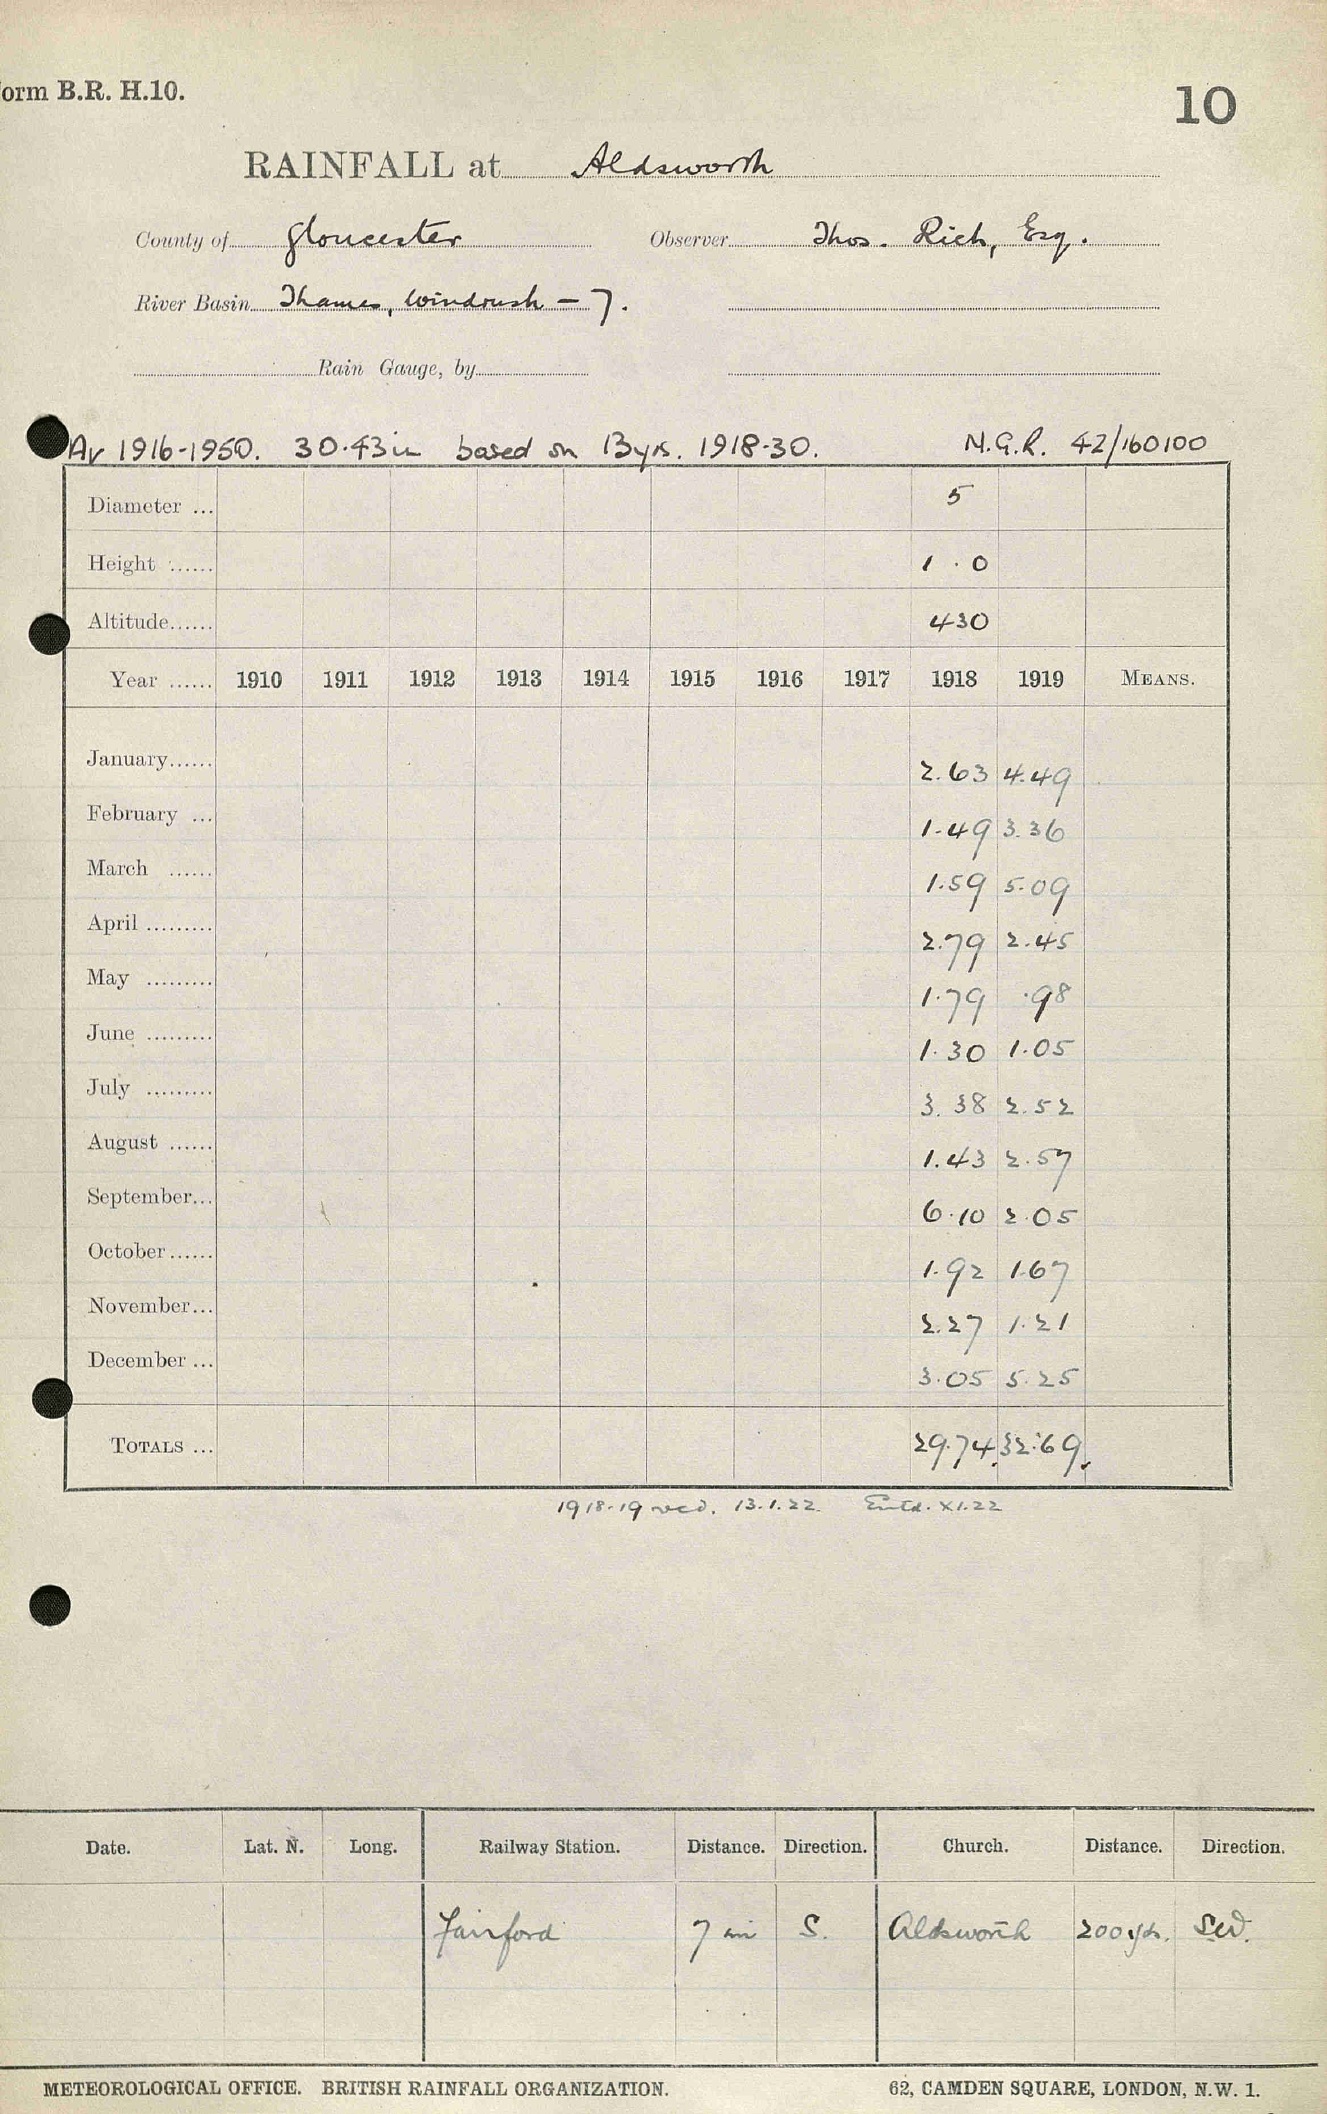 orm B.R. H.10.
10
RAINFALL at Aldsworth
County of Gloucester Observer Thos. Rich, Esq.
River Basin Thames, Windrush – 7.
Rain Gauge, by
Av 1916-1950. 30.43in based on 13yrs. 1918-30. N.G.R. 42/160100
Diameter ... 5
Height ...... 1 . 0
Altitude...... 430
Year ...... 1910 1911 1912 1913 1914 1915 1916 1917 1918 1919 MEANS.
January...... 2.63 4.49
February ... 1.49 3.36
March ...... 1.59 5.09
April ......... 2.79 2.45
May ......... 1.79 .98
June ......... 1.30 1.05
July ......... 3.38 2.52
August ...... 1.43 2.57
September... 6.10 2.05
October...... 1.92 1.67
November... 2.27 1.21
December ... 3.05 5.25
TOTALS ... 29.74 32.69
1918-19 recd. 13.1.22. Entd. XI.22
Date. Lat. N. Long. Railway Station. Distance. Direction. Church. Distance. Direction.
Fairford 7 mi S. Aldsworth 200 yds. SW.
METEOROLOGICAL OFFICE. BRITISH RAINFALL ORGANIZATION. 62, CAMDEN SQUARE, LONDON, N.W. 1.